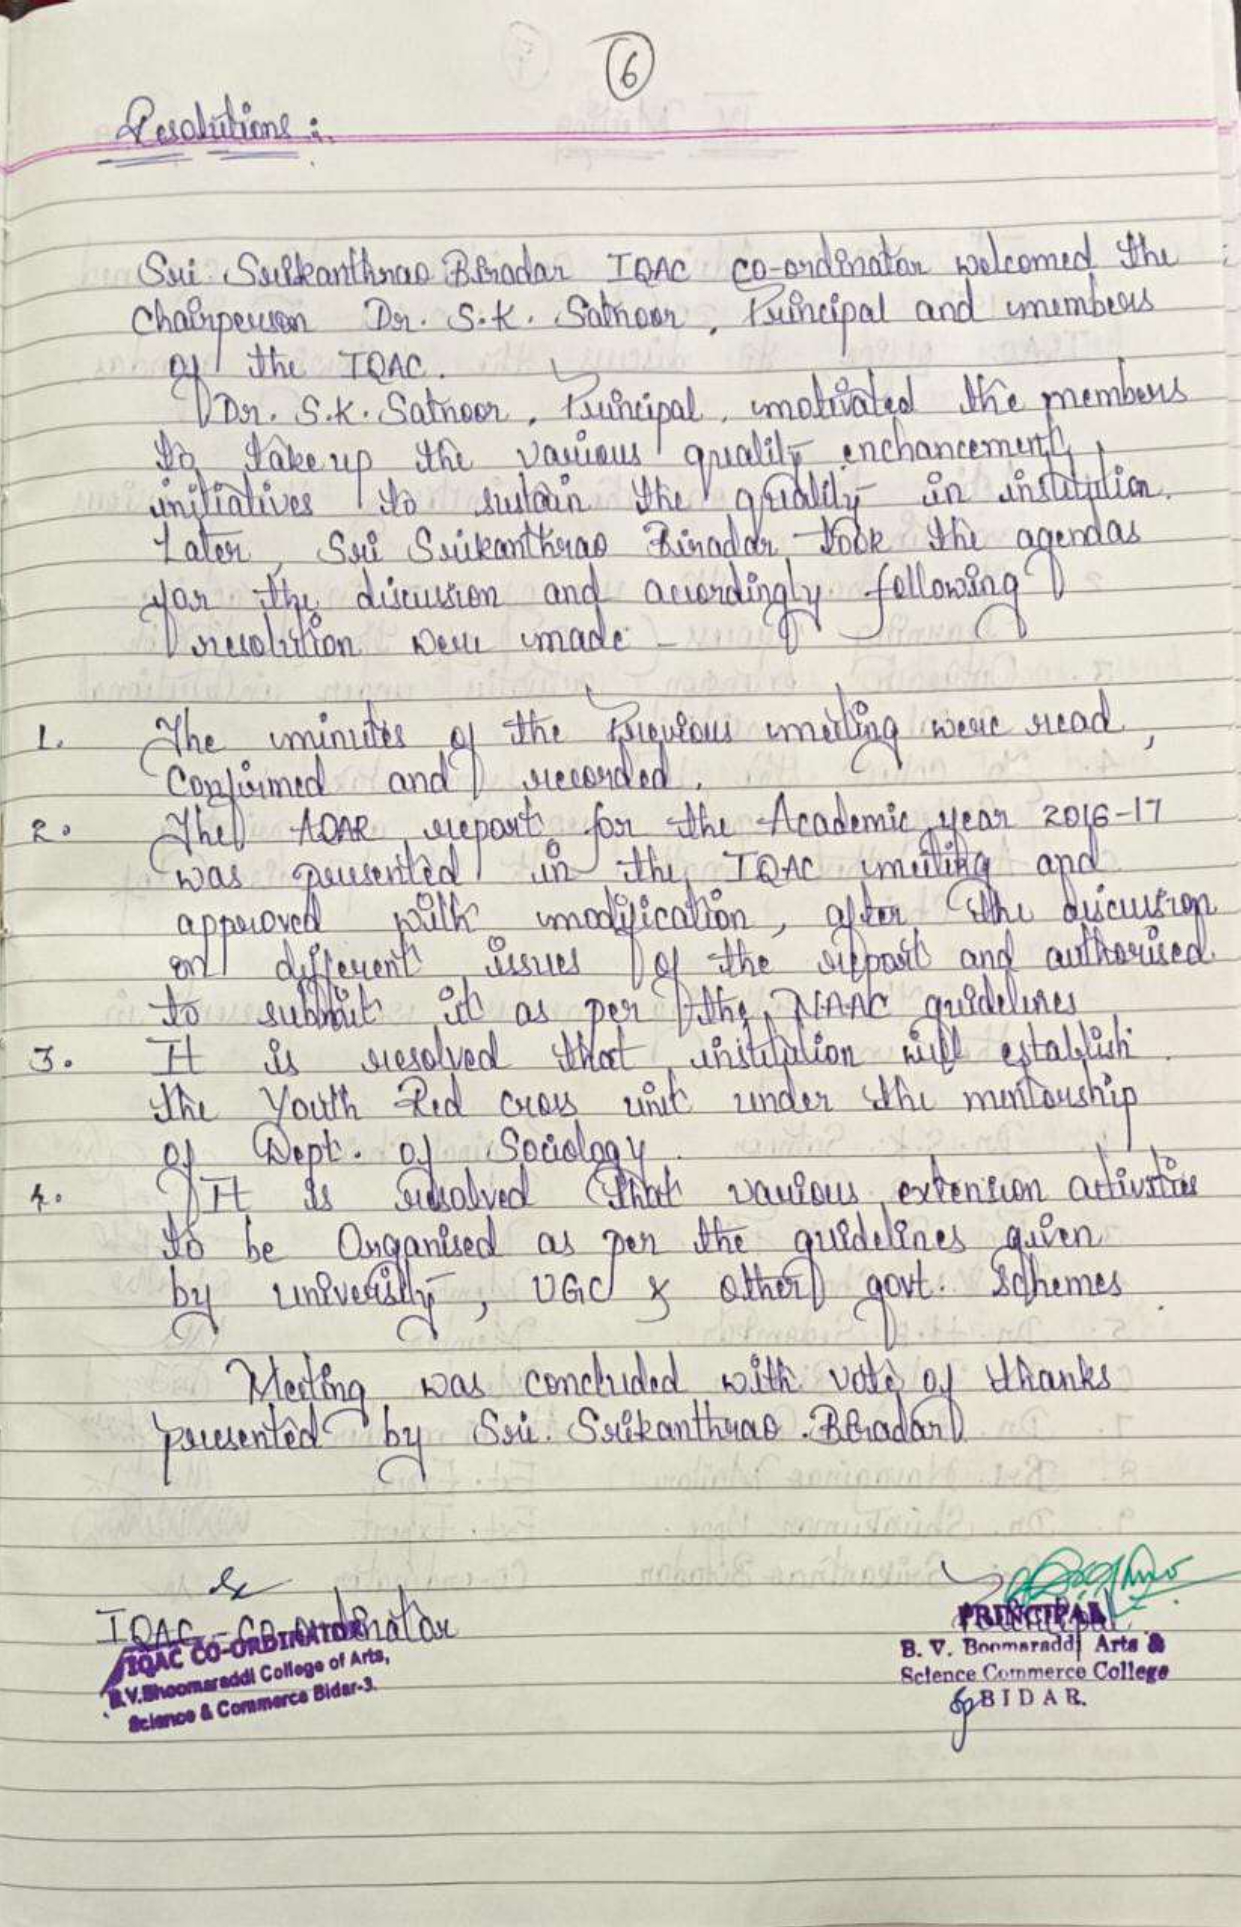 6
Resolutions :
Sri. Srikanthrao Biradar IQAC co-ordinator welcomed the
Chairperson Dr. S.K. Satnoor, Principal and members
of the IQAC.
Dr. S.K. Satnoor, Principal, motivated the members
to take up the various quality enchancement
initiatives to sustain the quality in institution.
Later, Sri Srikanthrao Biradar took the agendas
for the discussion and accordingly following
resolution were made -
1. The minutes of the Previous meeting were read,
Confirmed and recorded.
2. The AQAR report for the Academic year 2016-17
was presented in the IQAC meeting and
approved with modification, after the discussion
on different issues of the report and authorised
to submit it as per the NAAC guidelines
3. It is resolved that institution will establish
the Youth Red cross unit under the mentorship
of Dept. of Sociology.
4. It is resolved that various extension activities
to be Organised as per the guidelines given
by university, UGC & other govt. Schemes.
Meeting was concluded with vote of thanks
presented by Sri. Srikanthrao Biradar
IQAC - Co-ordinator
IQAC CO-ORDINATOR
B.V.Bhoomaraddi College of Arts,
Science & Commerce Bidar-3.
Principal
PRINCIPAL
B. V. Boomaraddi Arts &
Science Commerce College
BIDAR.